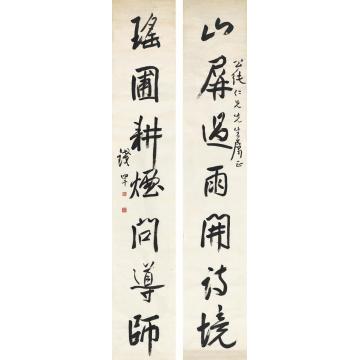 山屏過雨開詩境
公純仁兄先生屬正
瑤圃耕煙問導師
錢四